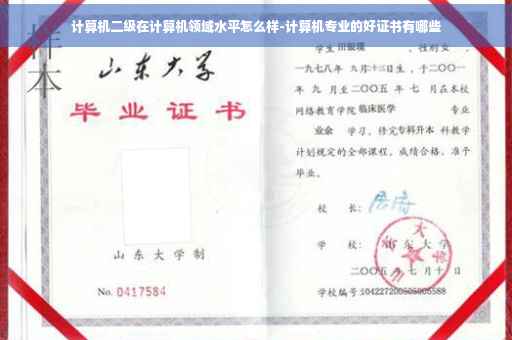 计算机二级在计算机领域水平怎么样-计算机专业的好证书有哪些
样本
山东大学
毕业证书
山东大学制
No. 0417584
学生
性别女,
一九七八年 九月十三日生,于二〇〇一
年 九 月至二〇〇五 年 七 月在本校
网络教育学院 临床医学 专业
业余 学习,修完专科升本 科教学
计划规定的全部课程,成绩合格,准予
毕业。
校 长:
学 校: 山东大学
二〇〇五年七月十日
学校编号: